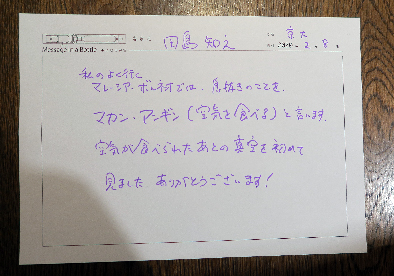 Message in a Bottle
田島 知之
京大
2. 8
私のよく行く
マレーシア・ボルネオでは、息抜きのことを、
マカン・アンギン(空気を食べる)と言います。
空気が食べられたあとの真空を初めて
見ました。ありがとうございます!